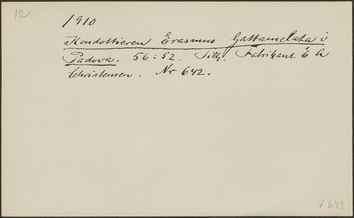 12.
1910
Kondottieren Erasmus Gattamelata i
Padova. 56:52. Tilh. Fabrikant E A
Christensen. Nr 642.